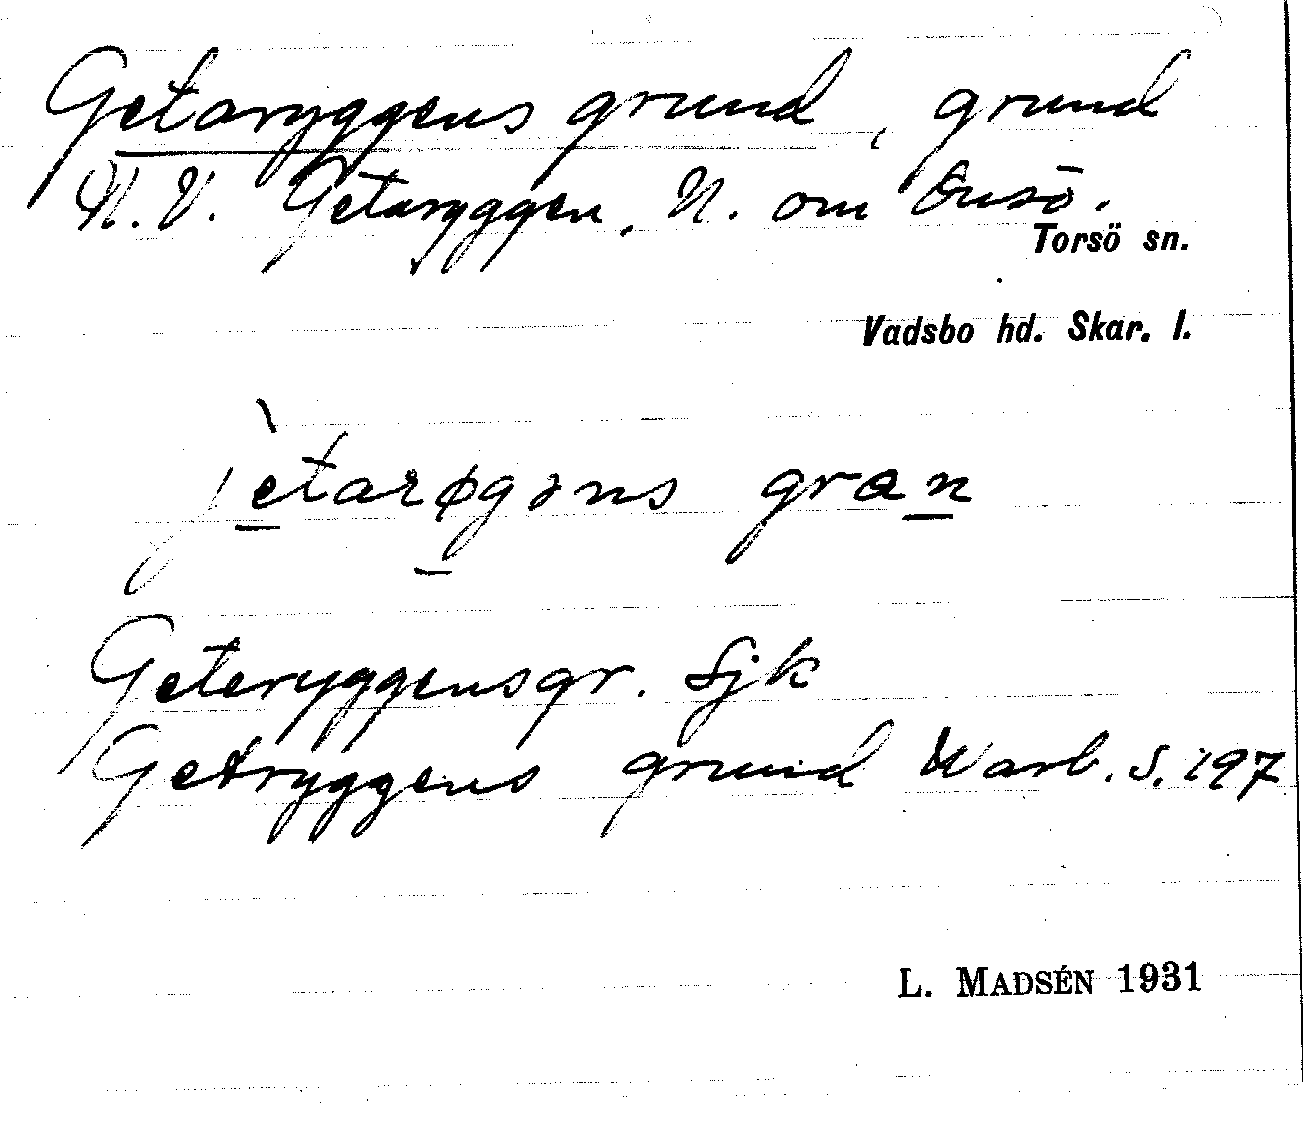 Getaryggens grund, grund
N.V. Getaryggen, N. om Onsö.
Torsö sn.
Vadsbo hd. Skar. l.
jètarøgəns gran
Geteryggensgr. Sjk
Getryggens grund Warb. S. 197
L. MADSÉN 1931